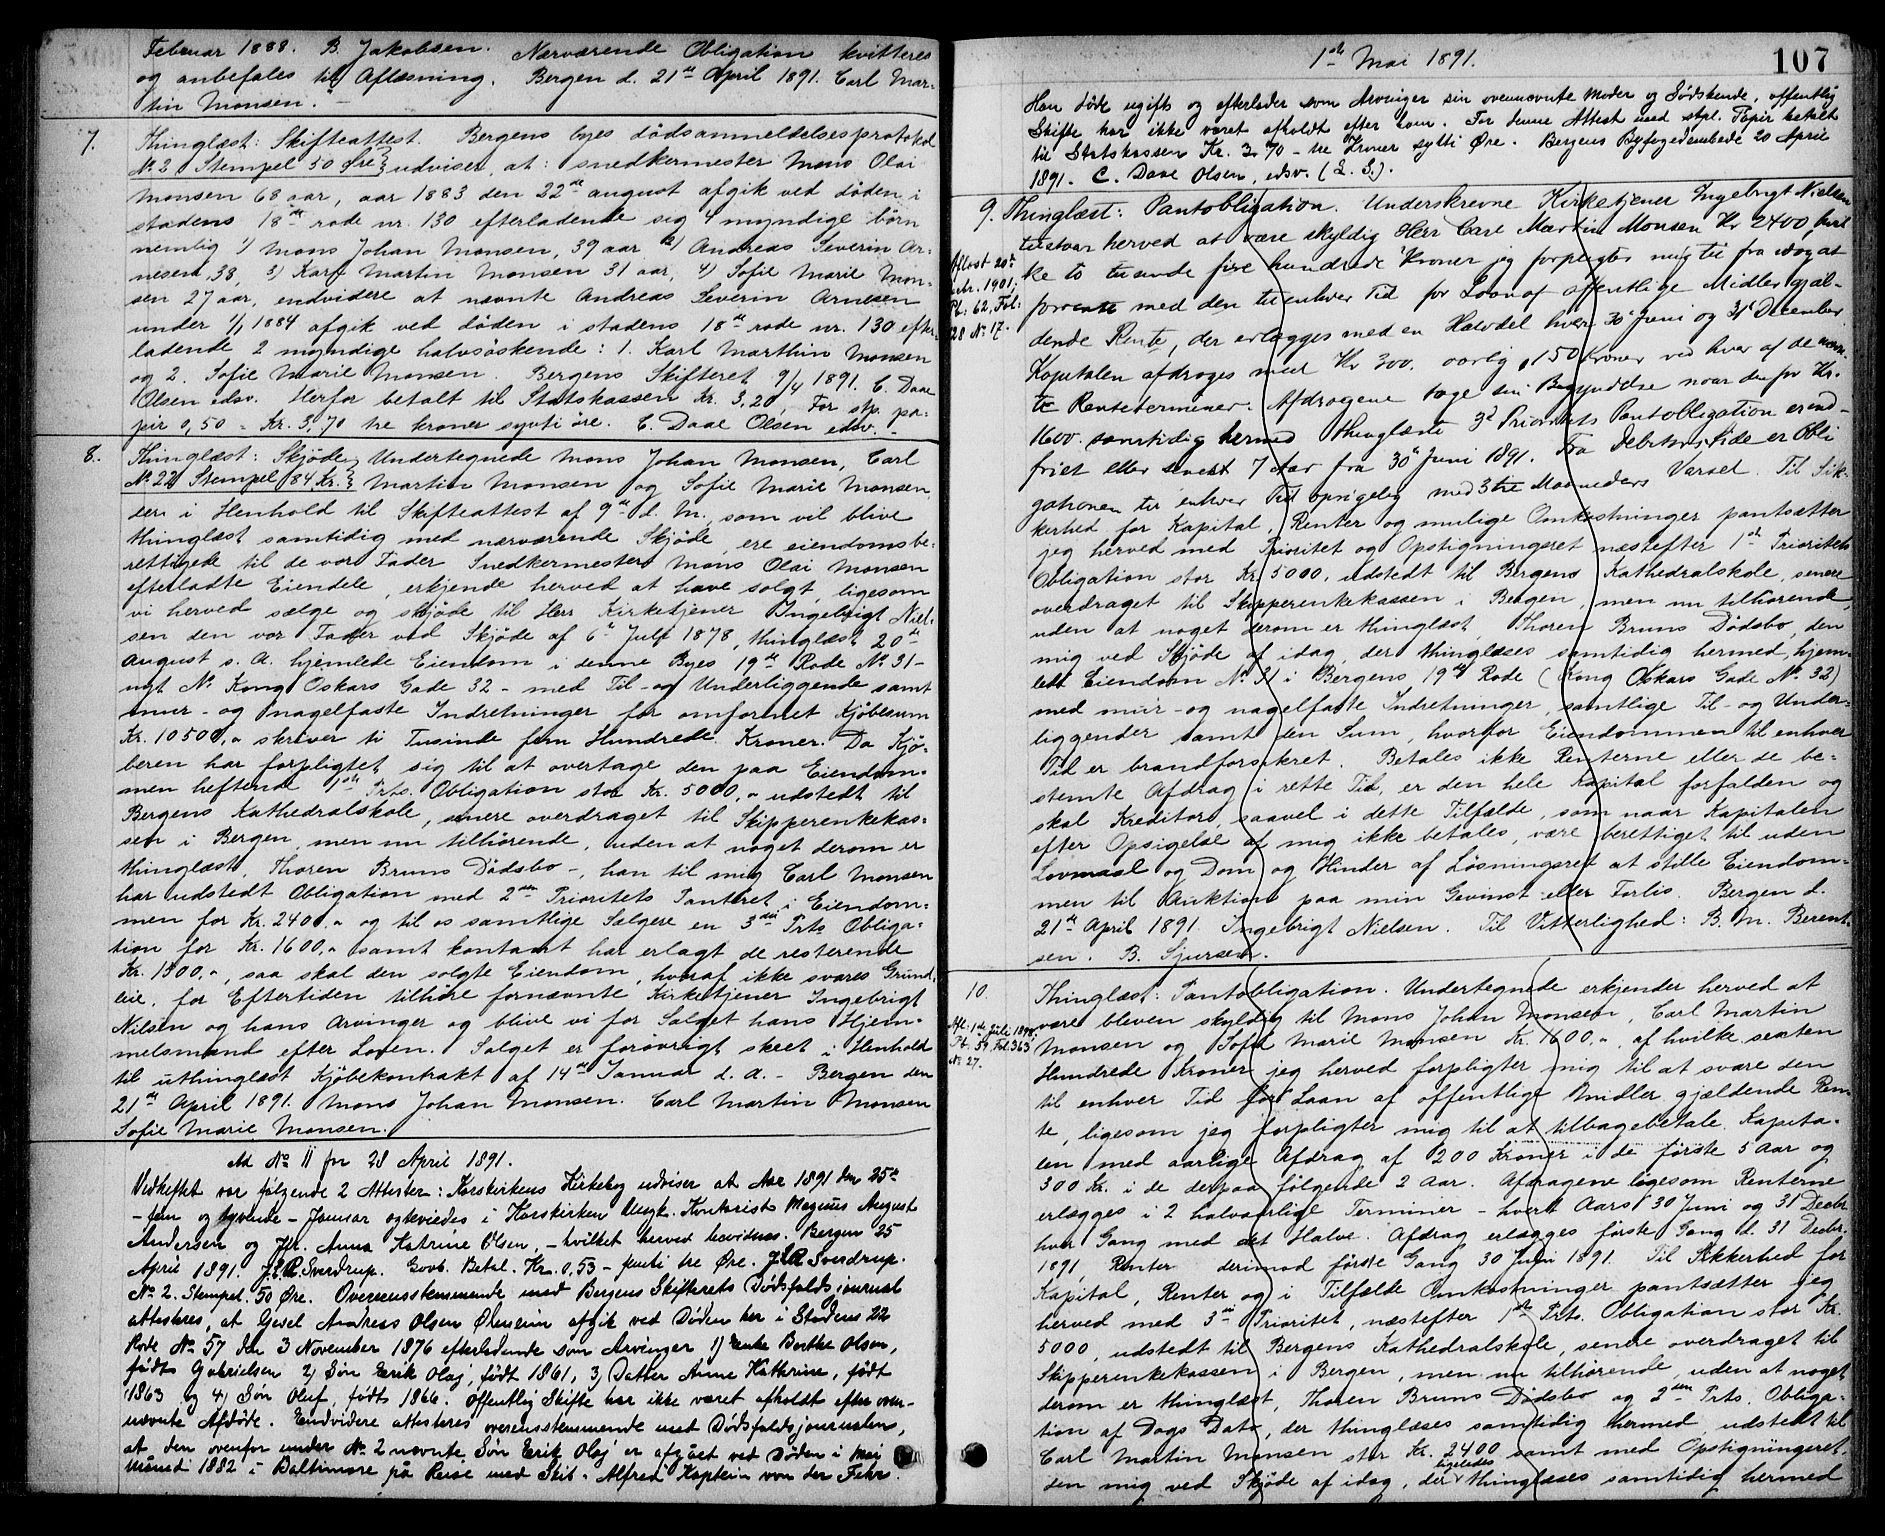 Februar 1888. B. Jakobsen. Nærværende Obligation kvitteres
og anbefales til Aflæsning. Bergen d. 21de April 1891. Carl Mar-
tin Monsen."
7. Thinglæst: Skifteattest. Bergens byes dödsanmeldelsesprotokol
No 2 Stempel 50 Øre} udviser, at: snedkermester Mons Olai
Monsen 68 aar, aar 1883 den 22de august afgik ved döden i
stadens 18de rode nr. 130 efterladende sig 4 myndige börn
nemlig 1) Mons Johan Monsen, 39 aar 2) Andreas Severin Ar-
nesen, 38, 3) Karl Martin Monsen 31 aar, 4) Sofie Marie Mon-
sen 27 aar, endvidere at nævnte Andreas Severin Arnesen
under 1/1 1884 afgik ved döden i stadens 18de rode nr. 130 efter-
ladende 2 myndige halvsöskende: 1. Karl Marthin Monsen
og 2. Sofie Marie Monsen. Bergens Skifteret 9/4 1891. C. Daae
Olsen edsv. Herfor betalt til Statskassen Kr. 3,20, For stp. pa-
pir 0,50 = Kr. 3,70 tre kroner sytti öre. C. Daae Olsen edsv. -
8. Thinglæst: Skjöde} Undertegnede Mons Johan Monsen, Carl
No 22 Stempel 84 Kr.} Martin Monsen og Sofie Marie Monsen
der i Henhold til Skifteattest af 9de d. M., som vil blive
thinglæst samtidig med nærværende Skjöde, ere eiendomsbe-
rettigede til de vor Fader Snedkermester Mons Olai Monsen
efterladte Eiendele, erkjende herved at have solgt, ligesom
vi herved sælge og skjöde til Herr Kirketjener Ingebrigt Niel-
sen den vor Fader ved Skjöde af 6te Juli 1878, thinglæst 20de
August s. A. hjemlede Eiendom i denne Byes 19de Rode No 31 -
nyt No Kong Oskars Gade 32 - med Til- og Underliggende samt
mur- og nagelfaste Indretninger for omforenet Kjöbesum
Kr. 10500,- skriver ti Tusinde fem Hundrede Kroner. Da Kjö-
beren har forpligtet sig til at overtage den paa Eiendom-
men heftende 1ste Prts. Obligation stor Kr. 5000,- udstedt til
Bergens Kathedralskole, senere overdraget til Skipperenkekas-
sen i Bergen, men nu tilhörende, uden at noget derom er
thinglæst, Thoren Bruns Dödsbo -, han til mig Carl Monsen
har udstedt Obligation med 2den Prioritets Panteret i Eiendom-
men for Kr. 2400,- og til os samtlige Sælgere en 3die Prts Obliga-
tion for Kr. 1600,- samt kontant har erlagt de resterende
Kr. 1500,-, saa skal den solgte Eiendom, hvoraf ikke svares Grund-
leie, for Eftertiden tilhöre fornævnte Kirketjener Ingebrigt
Nilsen og hans Arvinger og blive vi for Salget hans Hjem-
melsmænd efter Loven. Salget er forövrigt skeet i Henhold
til uthinglæst Kjöbekontrakt af 14de Januar d. A. - Bergen den
21de April 1891. Mons Johan Monsen. Carl Martin Monsen
Sofie Marie Monsen.
Ad No 11 for 28 April 1891.
Vedheftet var følgende 2 Attester: Korskirkens Kirkebog udviser at Aar 1891 den 25de
- fem og tyvende - Januar ægteviedes i Korskirken Ungk. Kontorist Magnus August
Andersen og Jfr. Anna Katrine Olsen, - hvilket herved bevidnes. Bergen 25
April 1891. J. R. Sverdrup. Geb. Betal. Kr. 0,53 - femti tre Øre. J. R. Sverdrup.
No 2. Stempel. 50 Øre. Overensstemmende med Bergens Skifterets Dødsfaldsjournal
attesteres, at Gesel Andreas Olsen afgik ved Døden her i Stadens 22
Rode No 57 den 3 November 1876 efterladende som Arvinger 1) Enke Berthe Olsen,
født Gabrielsen 2) Søn Erik Olaj, født 1861, 3) Datter Anne Kathrine, født
1863 og 4) Søn Oluf, født 1866. Offentlig Skifte har ikke været afholdt efter oven-
nævnte Afdøde. Endvidere attesteres overensstemmende med Dødsfaldsjournalen,
at den ovenfor under No 2 nævnte Søn Erik Olaj er afgået ved Døden i Mai
Måned 1882 i Baltimore på Reise med Skib "Alfred" Kaptein von der Fehr.
1ste Mai 1891.
107
Han døde ugift og efterlader som Arvinger sin ovennævnte Moder og Sødskende, offentlig
Skifte har ikke været afholdt efter ham. For denne Attest med stpl. Papir betalt
til Statskassen Kr. 3,70 - tre Kroner sytti Øre. Bergens Byfogedembede 20 April
1891. C. Daae Olsen, edsv. (L. S.).
9. Thinglæst: Pantobligation. Underskrevne Kirketjener Ingebrigt Nielsen
tilstaar herved at være skyldig Herr Carl Martin Monsen Kr 2400 hvil-
Aflæst 20de
ke to tusinde fire hundrede Kroner jeg forpligter mig til fra idag at
1901,
Pb. 62, Fol.
28 No 17.
forrente med den til enhver Tid for Laan af offentlige Midler gjæl-
dende Rente, der erlægges med en Halvdel hver 30 Juni og 31 December.
Kapitalen afdrages med Kr 300. aarlig, 150 Kroner ved hver af de nævn-
te Renteterminer. Afdragene tage sin Begyndelse naar den for Kr.
1600. samtidig hermed thinglæste 3d Prioritets Pantobligation er ind-
friet eller senest 7 Aar fra 30te Juni 1891. Fra Debitors Side er Obli-
gationen til enhver Tid opsigelig med 3 tre Maaneders Varsel. Til Sik-
kerhed for Kapital, Renter og mulige Omkostninger pantsætter
jeg herved med Prioritet og Opstigningsret næstefter 1ste Prioritets
Obligation stor Kr. 5000, udstedt til Bergens Kathedralskole, senere
overdraget til Skipperenkekassen i Bergen, men nu tilhörende,
uden at noget derom er thinglæst Thoren Bruns Dödsbo, den
mig ved Skjöde af idag, der thinglæses samtidig hermed, hjem-
lede Eiendom No 31 i Bergens 19de Rode (Kong Oskars Gade No 32)
med mur- og nagelfaste Indretninger, samtlige Til- og Under-
liggender samt den Sum, hvorfor Eiendommen til enhver
Tid er brandforsikret. Betales ikke Renterne eller de be-
stemte Afdrag i rette Tid, er den hele Kapital forfalden og
skal Kreditor, saavel i dette Tilfælde, som naar Kapitalen
efter Opsigelse af mig ikke betales, være berettiget til uden
Lovmaal og Dom og Hinder af Lösningsret at stille Eiendom-
men til Auktion paa min Gevinst eller Forlis. Bergen d.
21de April 1891. Ingebrigt Nielsen. Til Vitterlighed: B. M. Berent-
sen. B. Sjursen.
10. Thinglæst: Pantobligation. Undertegnede erkjender herved at
Afl. 1ste Juli 1898,
Pb. 57, Fol. 363
No 27.
være bleven skyldig til Mons Johan Monsen, Carl Martin
Monsen og Sofie Marie Monsen Kr. 1600,-, af hvilke sexten
Hundrede Kroner jeg herved forpligter mig til at svare den
til enhver Tid for Laan af offentlige Midler gjældende Ren-
te, ligesom jeg forpligter mig til at tilbagebetale Kapita-
len med aarlige Afdrag af 200 Kroner i de förste 5 Aar og
300 Kr. i de derpaa fölgende 2 Aar. Afdragene ligesom Renterne
erlægges i 2 halvaarlige Terminer - hvert Aars 30 Juni og 31 Decbr.
hver Gang med det Halve. Afdrag erlægges förste Gang d. 31 Decbr.
1891, Renter derimod förste Gang 30 Juni 1891. Til Sikkerhed for
Kapital, Renter og i Tilfælde Omkostninger pantsætter jeg
herved med 3die Prioritet, næstefter 1ste Prts. Obligation stor Kr.
5000, udstedt til Bergens Kathedralskole, senere overdraget til
Skipperenkekassen i Bergen, men nu tilhörende, uden at noget
derom er thinglæst, Thoren Bruns Dödsbo og 2den Prts. Obliga-
tion af Dags Dato, der thinglæses samtidig hermed, udstedt til
Carl Martin Monsen stor Kr. 2400 samt med Opstigningsret,
den mig ved Skjöde af idag, der ligeledes thinglæses samtidig hermed